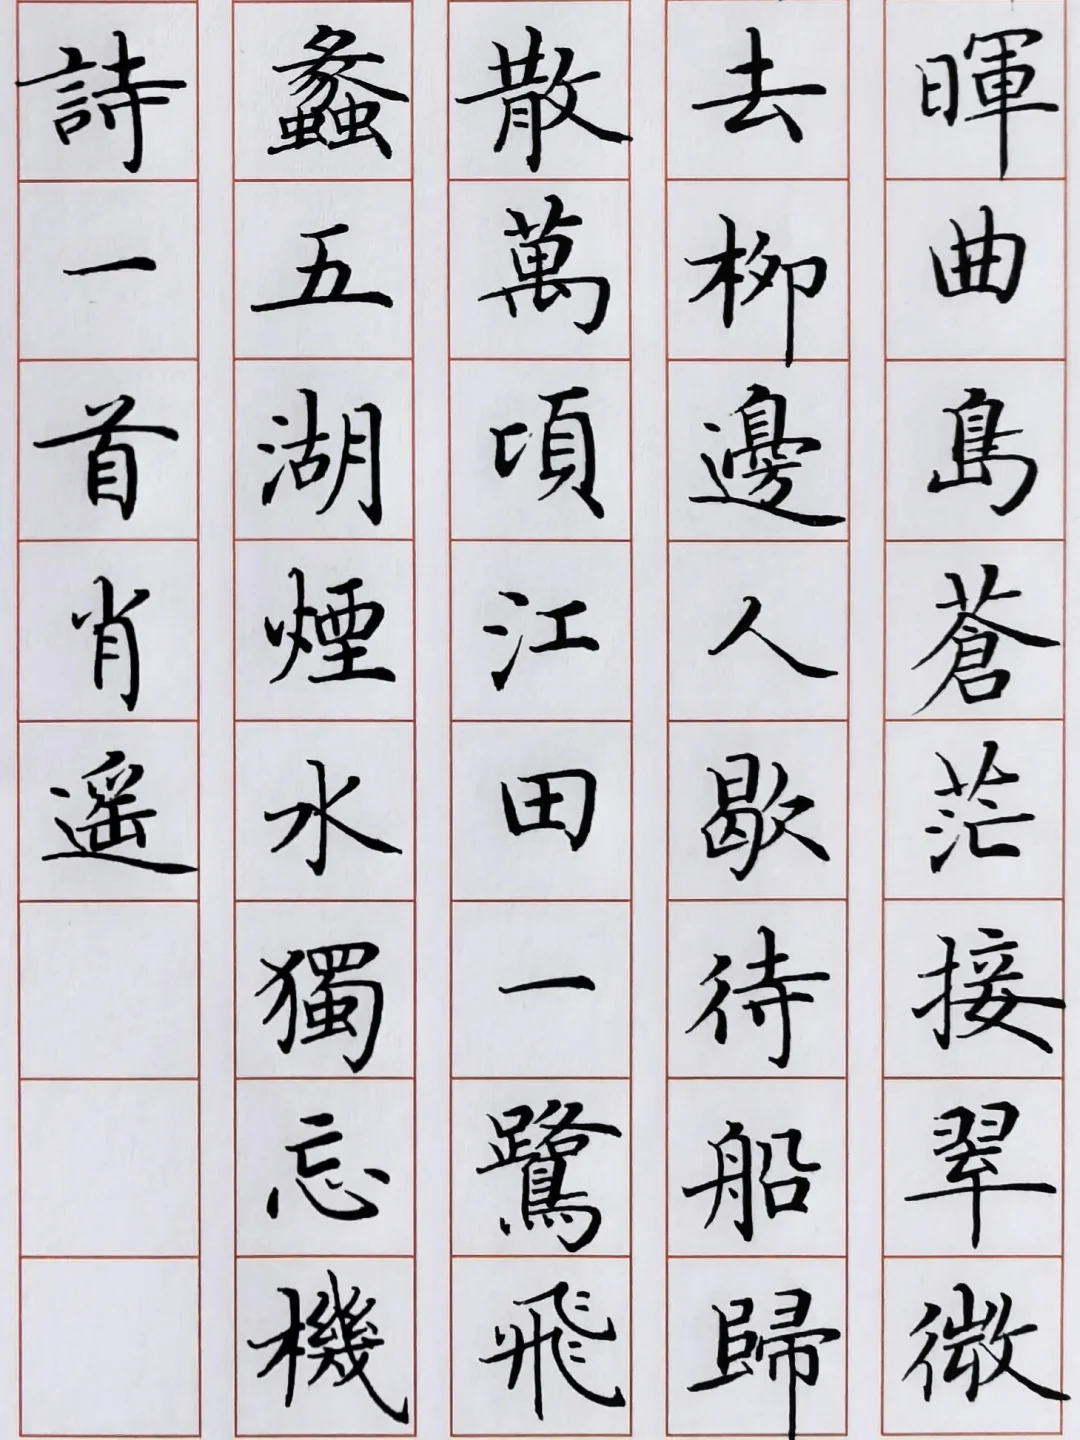 暉曲島蒼茫接翠微
去柳邊人歇待船歸
散萬頃江田一鷺飛
蠡五湖煙水獨忘機
詩一首肖遥